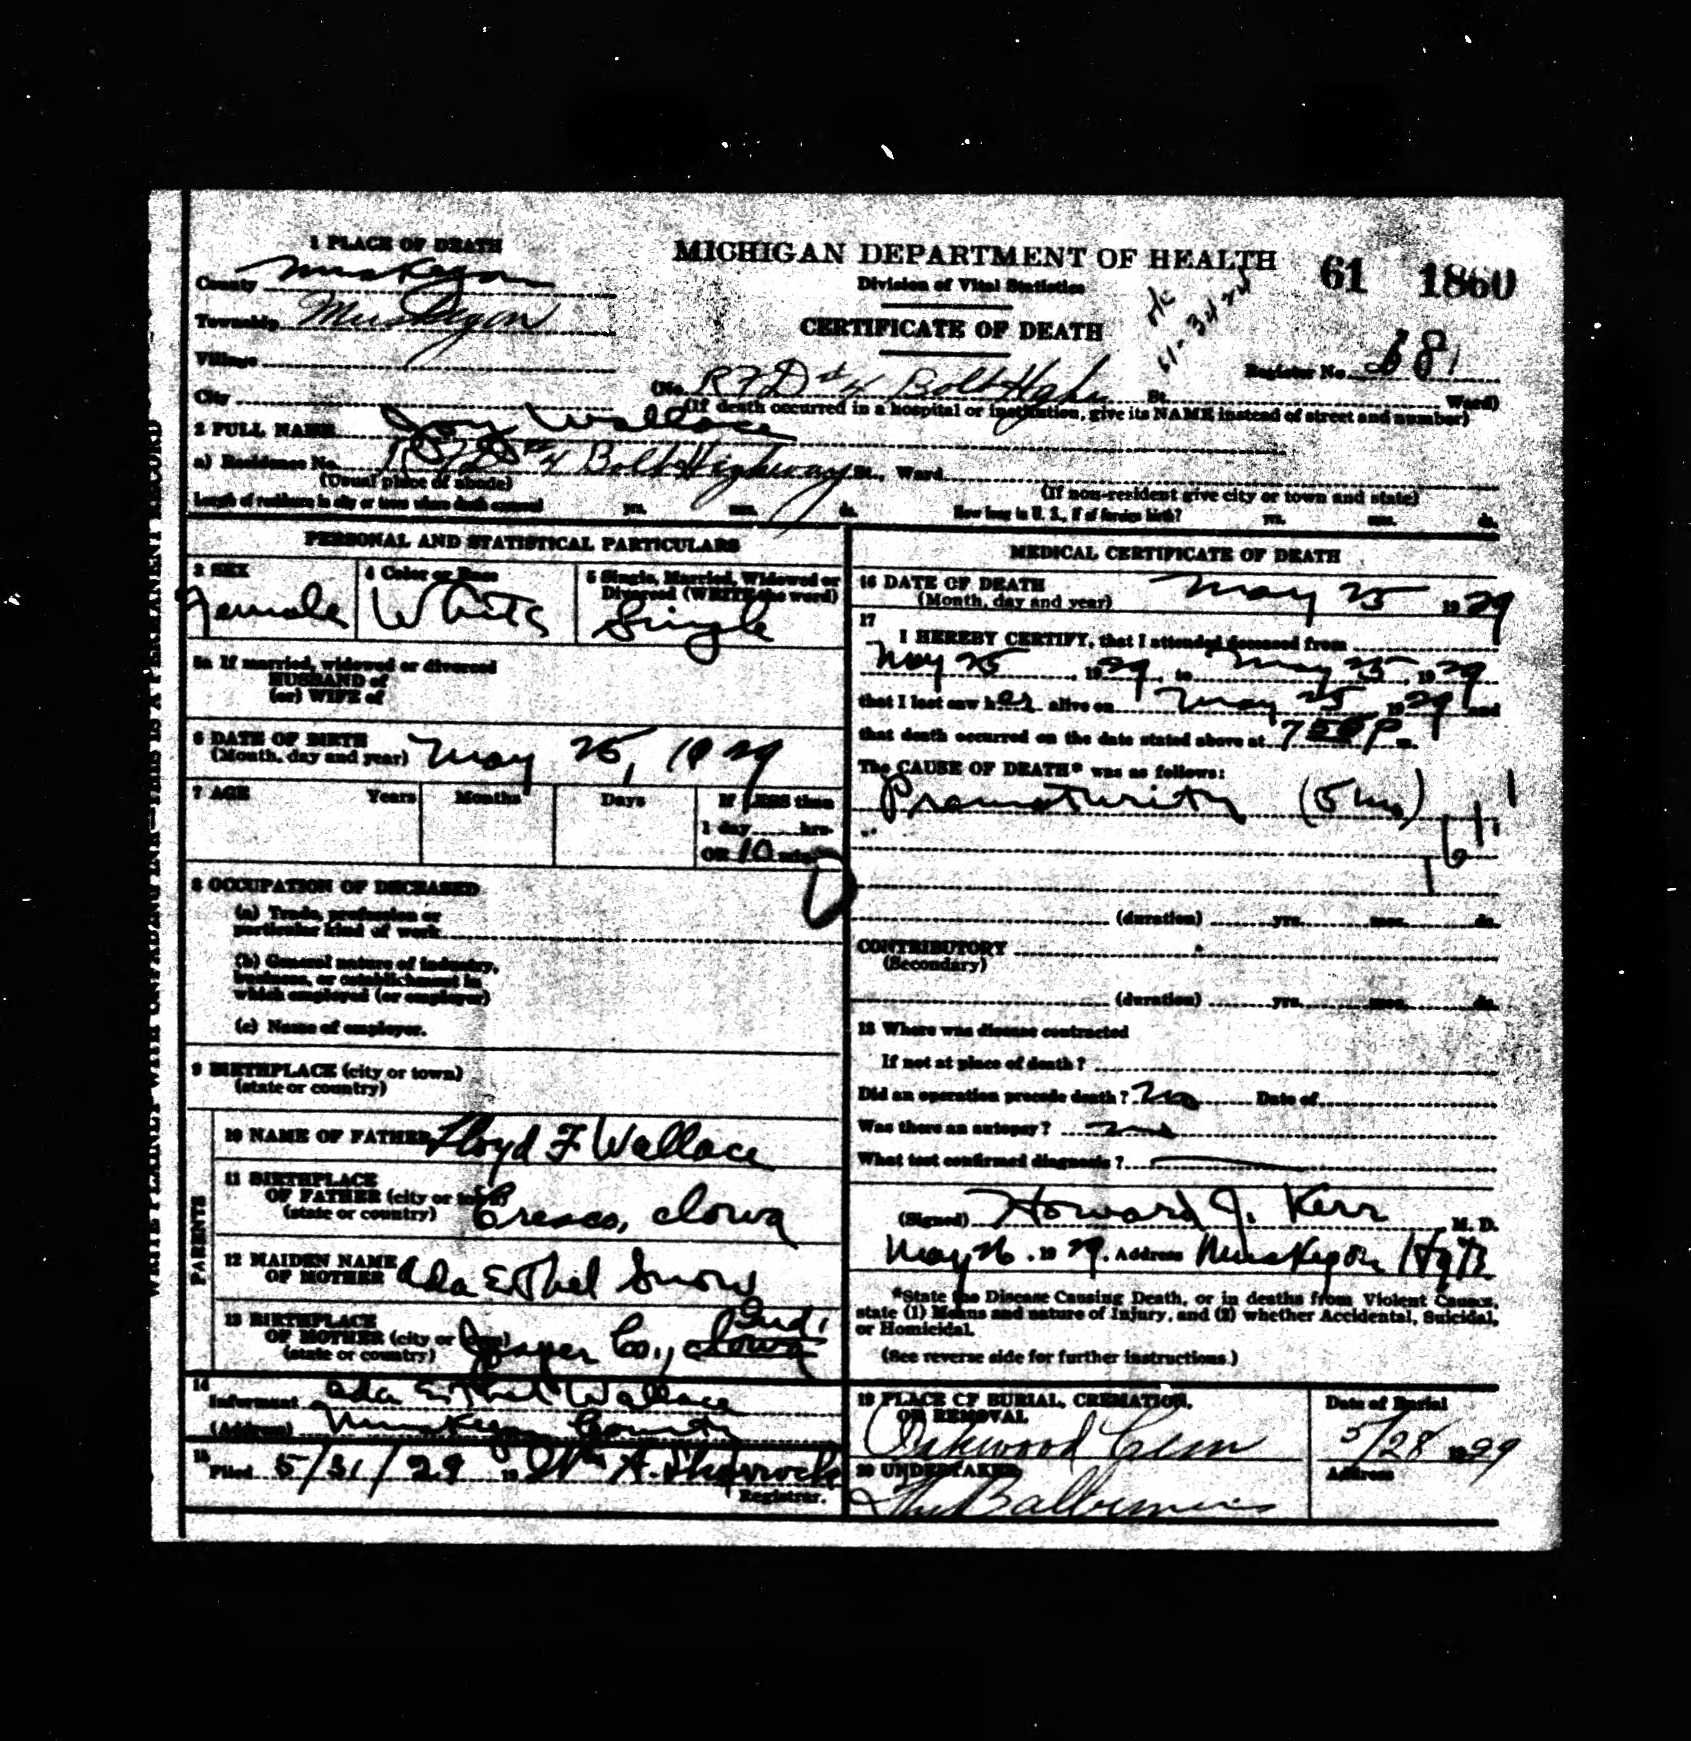 1 PLACE OF DEATH
MICHIGAN DEPARTMENT OF HEALTH
61 1860
County Muskegon
Division of Vital Statistics
Township Muskegon
CERTIFICATE OF DEATH
61-3424
Village
Register No. 681
City
(No. RFD #4 Bolt Hghy St. Ward)
(If death occurred in a hospital or institution, give its NAME instead of street and number)
2 FULL NAME Joy Wallace
a) Residence No. RFD #4 Bolt Highway St., Ward
(Usual place of abode)
(If non-resident give city or town and state)
Length of residence in city or town where death occurred yrs. mos. ds.
How long in U. S., if of foreign birth? yrs. mos. ds.
PERSONAL AND STATISTICAL PARTICULARS
3 SEX
Female
4 Color or Race
White
5 Single, Married, Widowed or
Divorced (WRITE the word)
Single
5a If married, widowed or divorced
HUSBAND of
(or) WIFE of
6 DATE OF BIRTH
(Month, day and year) May 25, 1929
7 AGE Years Months Days If LESS than
1 day hrs.
OR 10 min.
8 OCCUPATION OF DECEASED
(a) Trade, profession or
particular kind of work
(b) General nature of industry,
business, or establishment in
which employed (or employer)
(c) Name of employer.
9 BIRTHPLACE (city or town)
(state or country)
PARENTS
10 NAME OF FATHER Lloyd F Wallace
11 BIRTHPLACE
OF FATHER (city or town)
(state or country) Cresco, Iowa
12 MAIDEN NAME
OF MOTHER Ada Ethel Snow
13 BIRTHPLACE Ind,
OF MOTHER (city or town)
(state or country) Jasper Co., Iowa
14
Informant Ada Ethel Wallace
(Address) Muskegon County
15
Filed 5/31/29 19 Wm A.
Registrar.
MEDICAL CERTIFICATE OF DEATH
16 DATE OF DEATH
(Month, day and year) May 25 1929
17
I HEREBY CERTIFY, that I attended deceased from
May 25, 1929, to May 25, 1929
that I last saw her alive on May 25 1929 and
that death occurred on the date stated above at 750 P m.
The CAUSE OF DEATH* was as follows:
Prematurity (5 mo)
(duration) yrs. mos. ds.
CONTRIBUTORY
(Secondary)
(duration) yrs. mos. ds.
18 Where was disease contracted
If not at place of death?
Did an operation precede death? No Date of
Was there an autopsy? no
What test confirmed diagnosis?
(Signed) Howard J. Kerr M. D.
May 26, 1929. Address Muskegon Hgts
*State the Disease Causing Death, or in deaths from Violent Causes,
state (1) Means and nature of Injury, and (2) whether Accidental, Suicidal,
or Homicidal.
(See reverse side for further instructions.)
19 PLACE OF BURIAL, CREMATION,
OR REMOVAL
Oakwood Cem
Date of Burial
5/28 1929
20 UNDERTAKER
The Balbirnies
Address